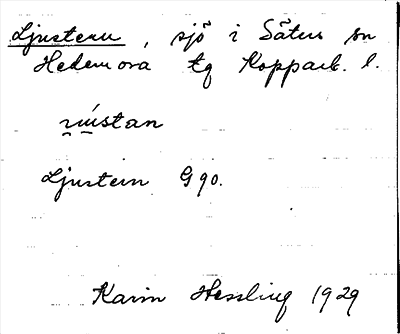 Ljustern, sjö i Säters sn
Hedemora tg Kopparb. l.
Ljustern G 90.
Karin Hessling 1929